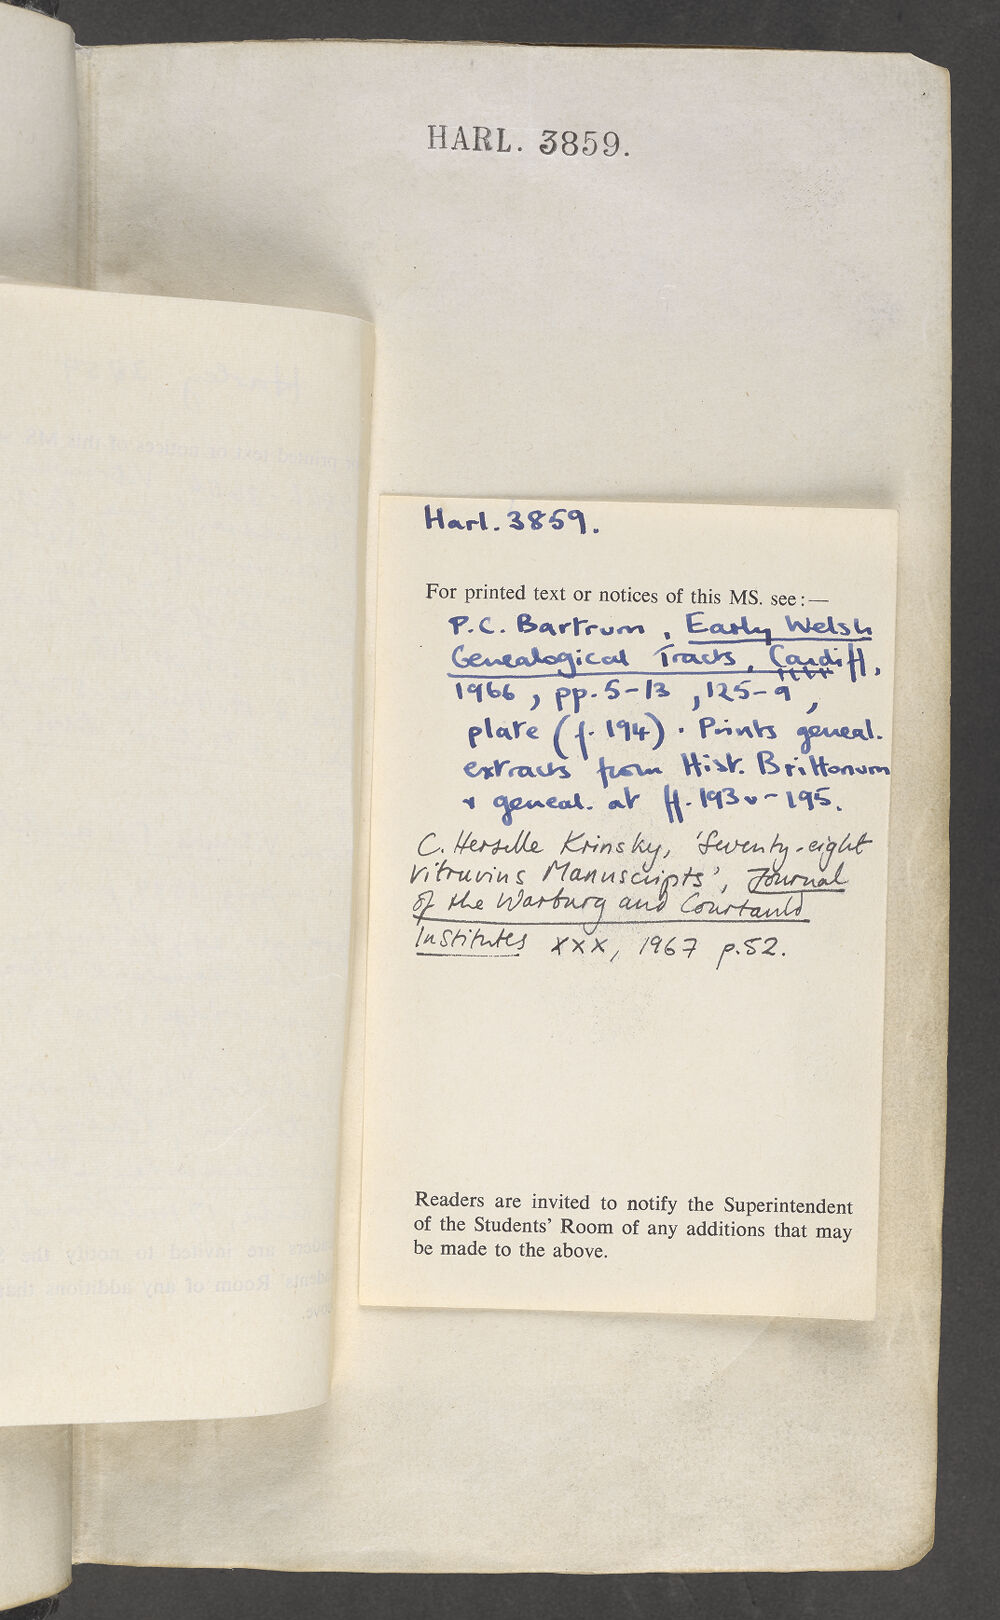 HARL. 3859.
Harl. 3859.
For printed text or notices of this MS. see:—
P.C. Bartrum, Early Welsh
Genealogical Tracts, Cardiff,
1966, pp. 5-13, 125-9,
plate (f. 194). Prints geneal.
extracts from Hist. Brittonum
& geneal. at ff. 193v-195.
C. Herselle Krinsky, 'Seventy-eight
Vitruvius Manuscripts', Journal
of the Warburg and Courtauld
Institutes XXX, 1967 p.52.
Readers are invited to notify the Superintendent
of the Students' Room of any additions that may
be made to the above.